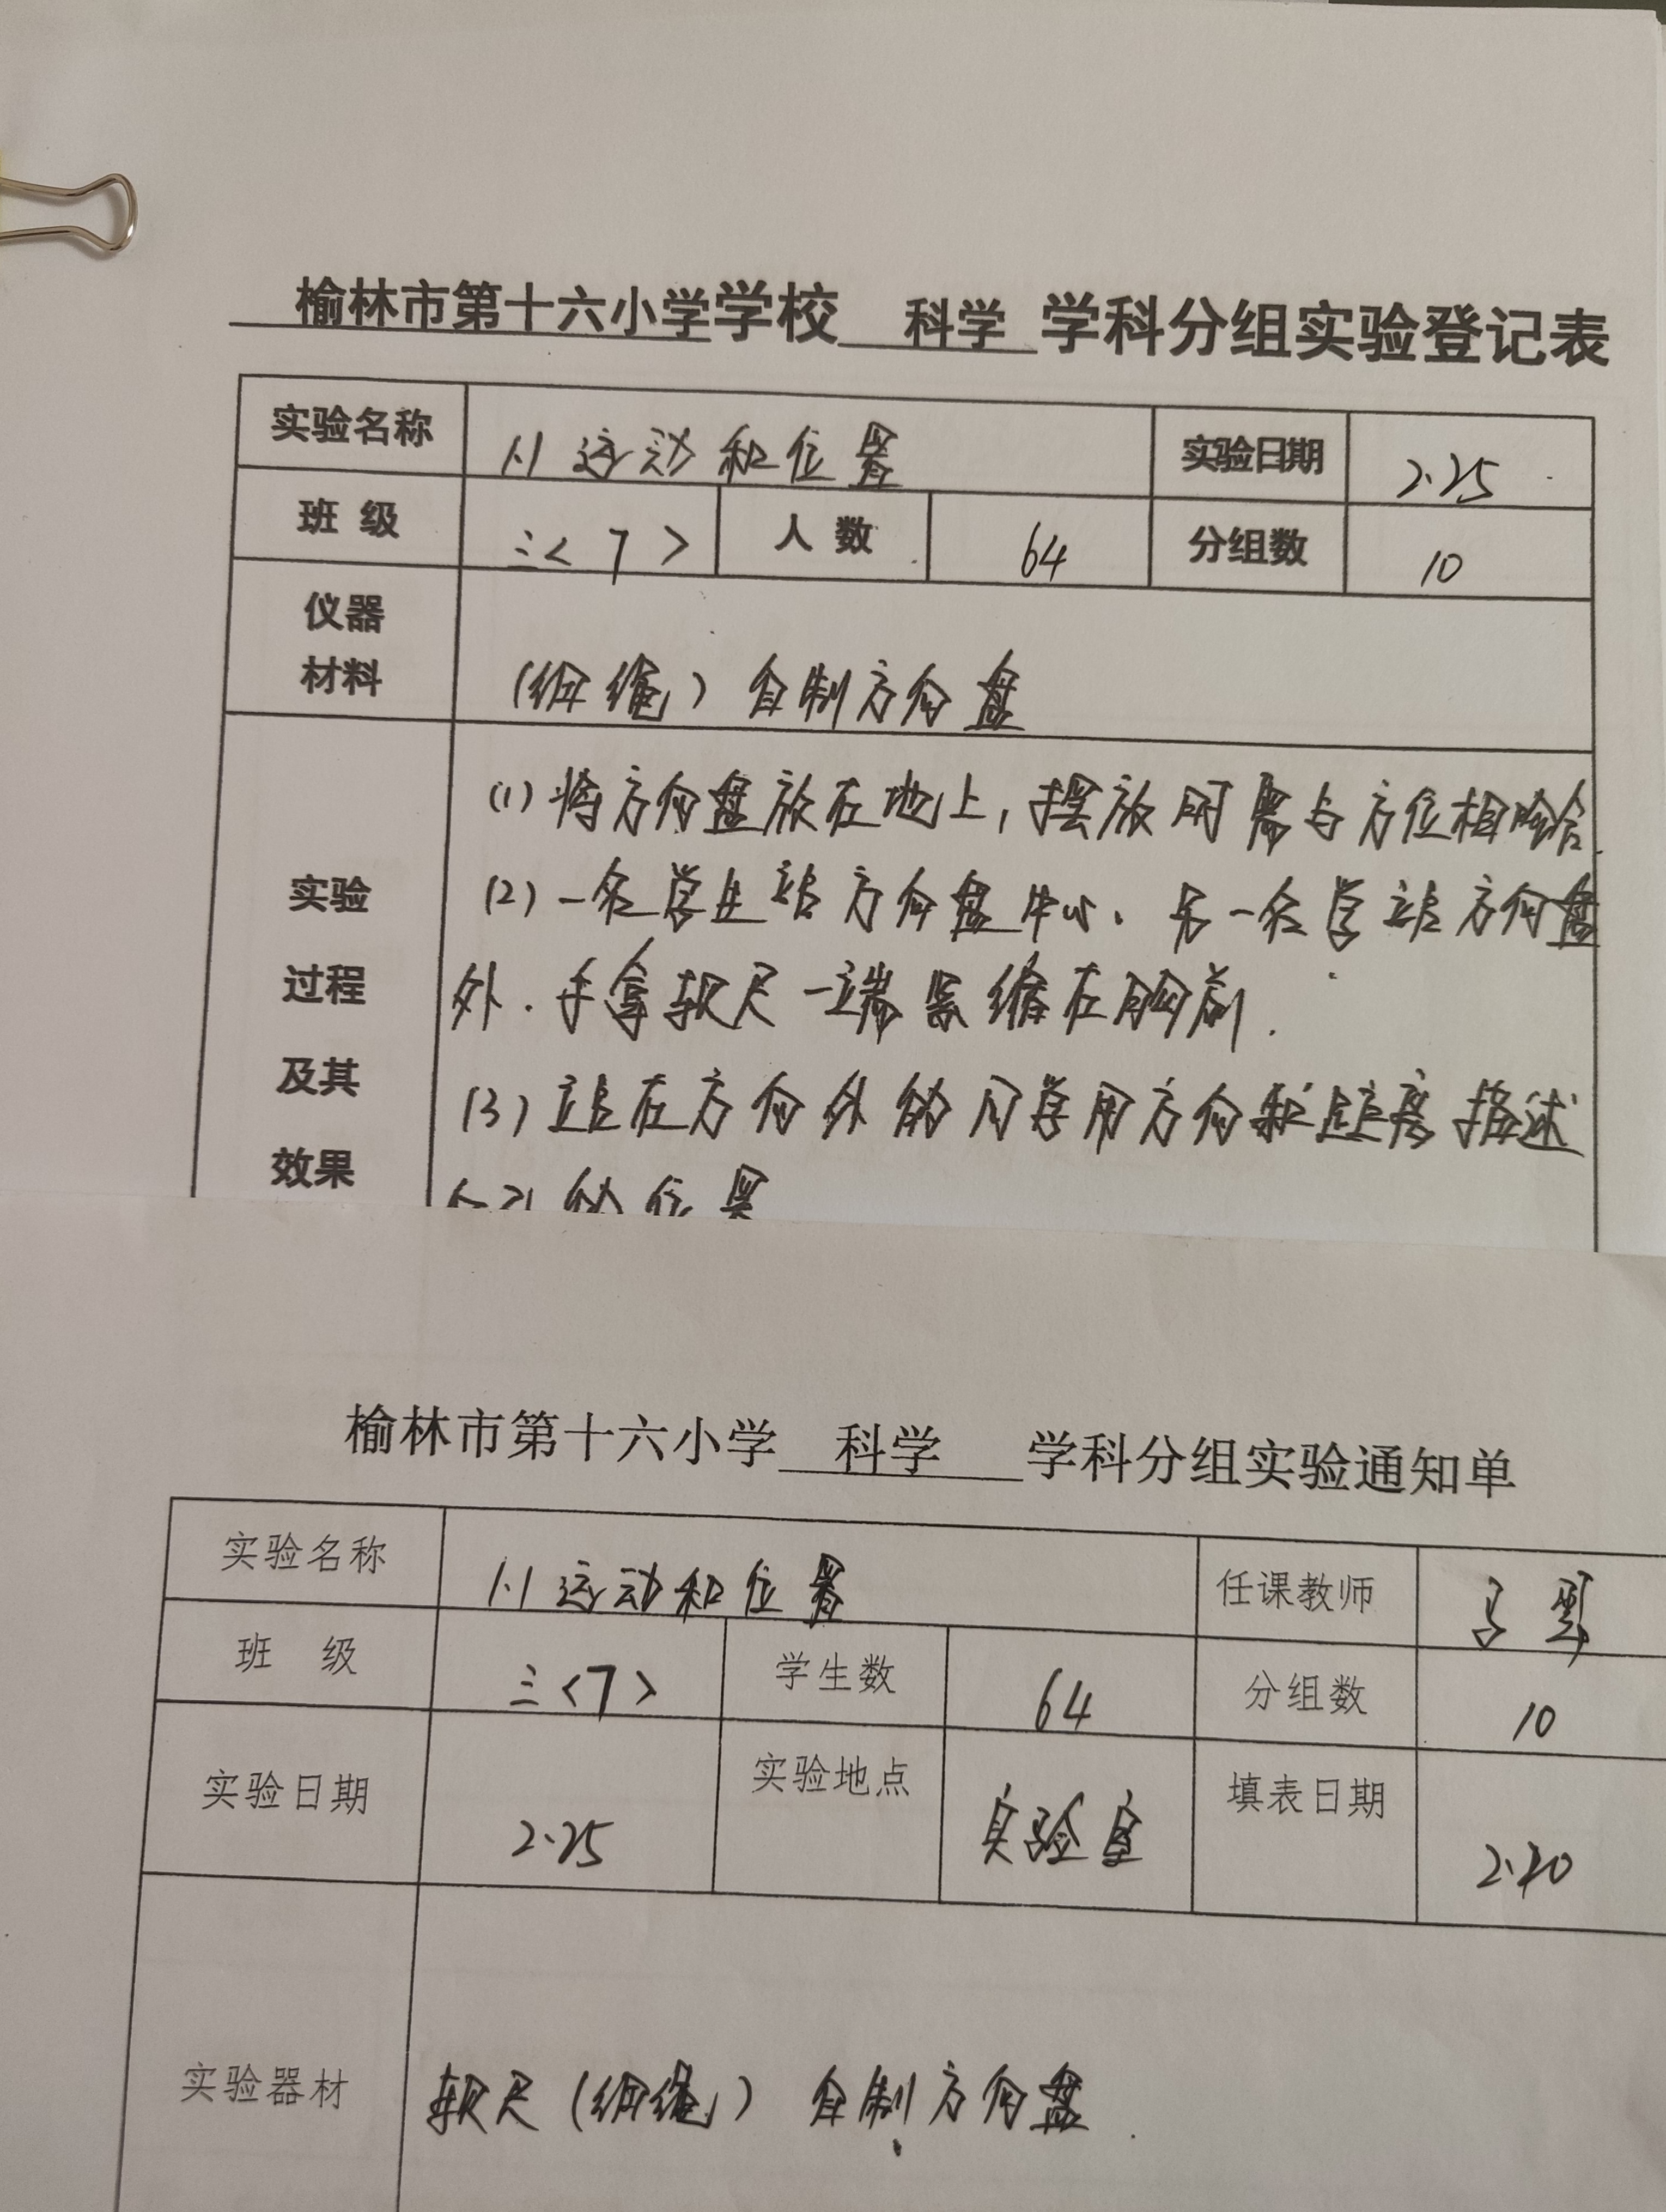 榆林市第十六小学学校 科学 学科分组实验登记表
实验名称 1.1 运动和位置 实验日期 2.25
班 级 三<7> 人 数 64 分组数 10
仪器
材料 (细绳) 自制方向盘
(1) 将方向盘放在地上,摆放时需与方位相吻合.
实验 (2) 一名学生站方向盘中心、另一名学站方向盘
过程 外.手拿软尺一端紧缩在胸前.
及其 (3) 站在方向外的同学用方向和距离描述
效果 的位置
榆林市第十六小学 科学 学科分组实验通知单
实验名称 1.1 运动和位置 任课教师
班 级 三<7> 学生数 64 分组数 10
实验日期 2.25 实验地点 实验室 填表日期 2.20
实验器材 软尺 (细绳) 自制方向盘